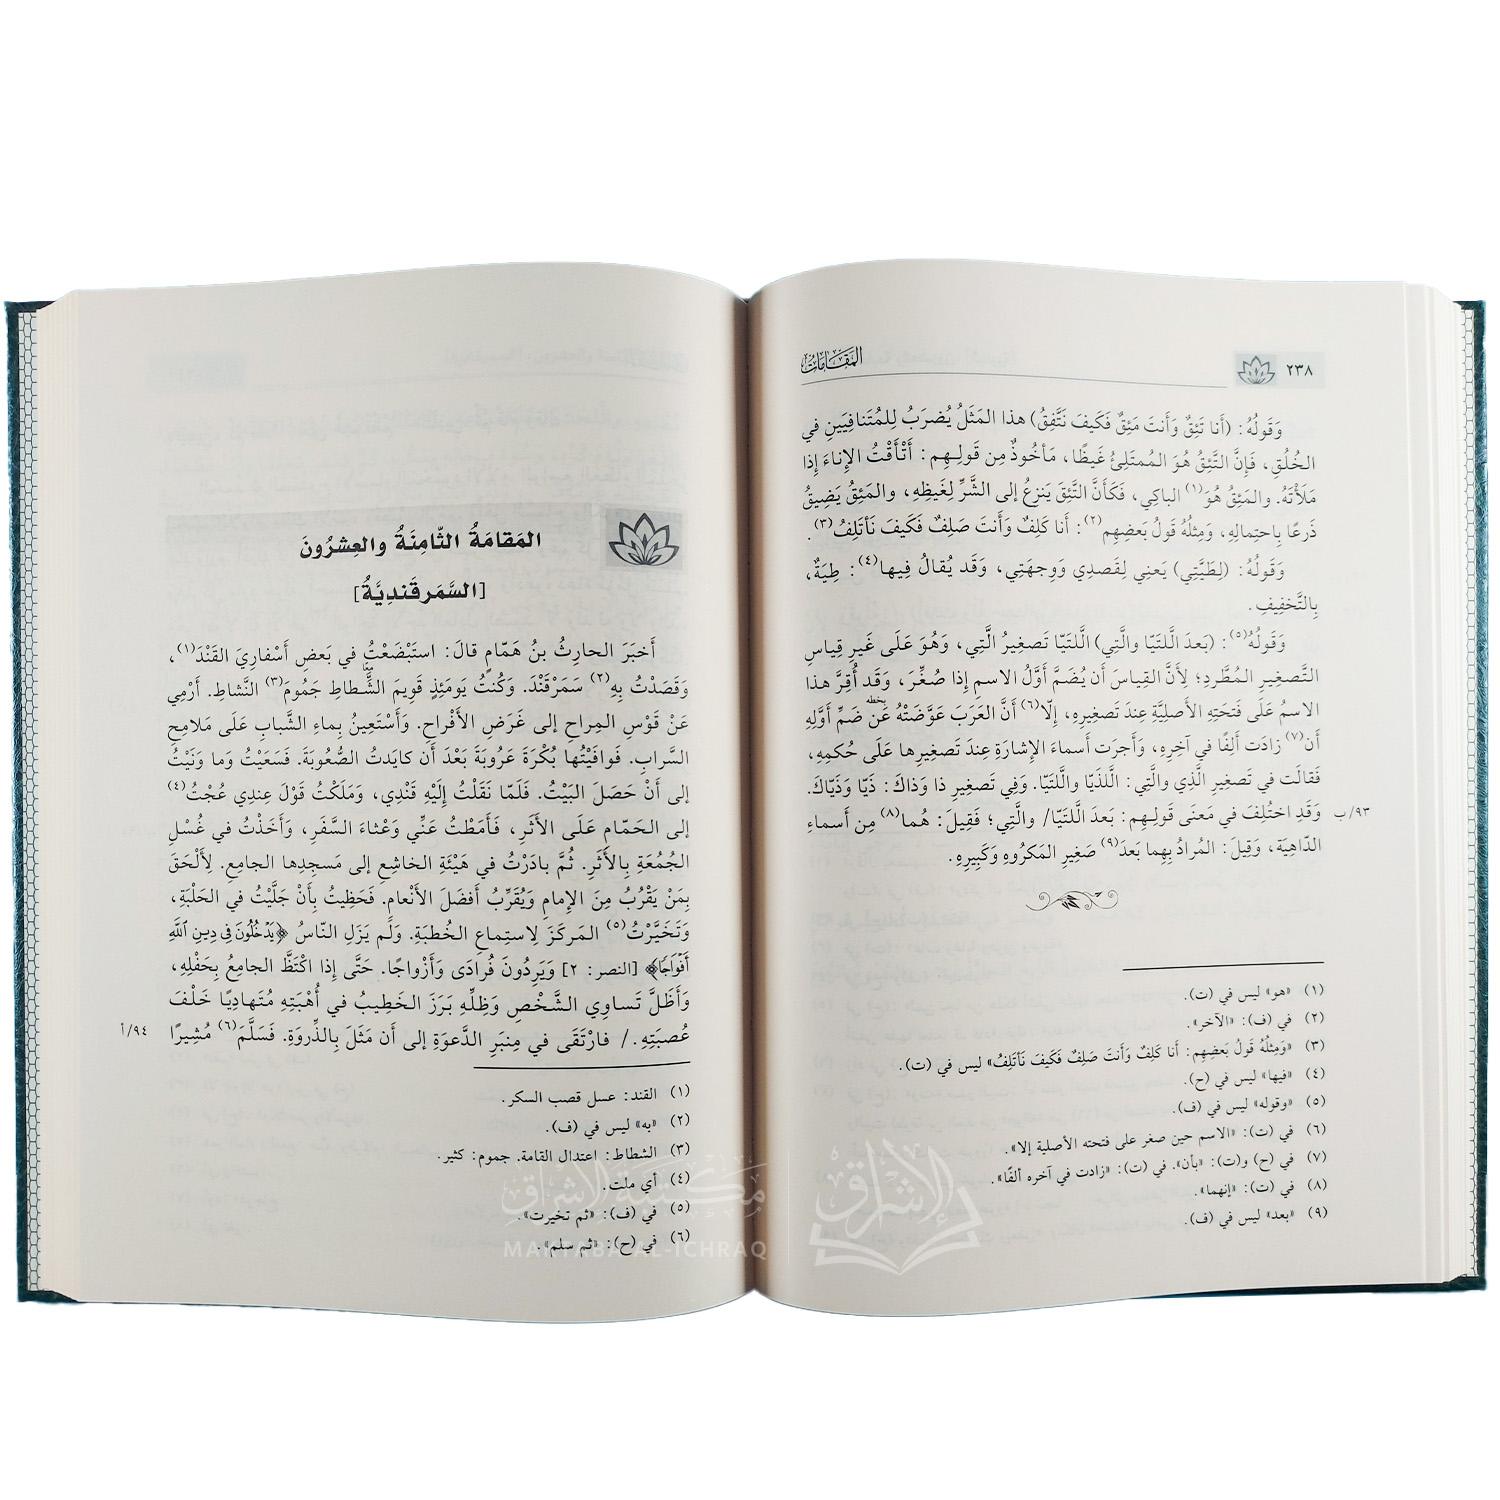 ٢٣٨
المَقَامَاتُ
وَقَولُهُ: (أَنا تَئِقٌ وَأَنتَ مَئِقٌ فَكَيفَ نَتَّفِقُ) هذا المَثَلُ يُضرَبُ لِلمُتَنافِيَينِ في
الخُلُقِ، فَإِنَّ التَّئِقَ هُوَ المُمتَلِئُ غَيظًا، مَأخُوذٌ مِن قَولِهِم: أَتْأَقْتُ الإِناءَ إِذا
مَلَأْتَهُ. والمَئِقُ هُوَ(١) الباكِي، فَكَأَنَّ التَّئِقَ يَنزِعُ إِلى الشَّرِّ لِغَيظِهِ، والمَئِقُ يَضِيقُ
ذَرعًا بِاحتِمالِهِ، وَمِثلُهُ قَولُ بَعضِهِم(٢): أَنا كَلِفٌ وَأَنتَ صَلِفٌ فَكَيفَ نَأتَلِفُ(٣).
وَقَولُهُ: (لِطَيَّتِي) يَعنِي لِقَصدِي وَوِجهَتِي، وَقَد يُقالُ فِيها(٤): طِيَةٌ،
بِالتَّخفِيفِ.
وَقَولُهُ(٥): (بَعدَ اللَّتَيّا والَّتِي) اللَّتَيّا تَصغِيرُ الَّتِي، وَهُوَ عَلَى غَيرِ قِياسِ
التَّصغِيرِ المُطَّرِدِ؛ لِأَنَّ القِياسَ أَن يُضَمَّ أَوَّلُ الاسمِ إِذا صُغِّرَ، وَقَد أُقِرَّ هذا
الاسمُ عَلَى فَتحَتِهِ الأَصلِيَّةِ عِندَ تَصغِيرِهِ، إِلّا(٦) أَنَّ العَرَبَ عَوَّضَتْهُ عَن ضَمِّ أَوَّلِهِ
أَن(٧) زادَت أَلِفًا في آخِرِهِ، وَأَجرَت أَسماءَ الإِشارَةِ عِندَ تَصغِيرِها عَلَى حُكمِهِ،
فَقالَت في تَصغِيرِ الَّذِي والَّتِي: اللَّذَيّا واللَّتَيّا. وَفي تَصغِيرِ ذا وَذاكَ: ذَيّا وَذَيّاكَ.
وَقَدِ اختُلِفَ في مَعنَى قَولِهِم: بَعدَ اللَّتَيّا/ والَّتِي؛ فَقِيلَ: هُما(٨) مِن أَسماءِ ٩٣/ب
الدّاهِيَة، وَقِيلَ: المُرادُ بِهِما بَعدَ(٩) صَغِيرِ المَكرُوهِ وَكَبِيرِهِ.
(١) «هو» ليس في (ت).
(٢) في (ف): «الآخر».
(٣) «وَمِثلُهُ قَولُ بَعضِهِم: أَنا كَلِفٌ وَأَنتَ صَلِفٌ فَكَيفَ نَأتَلِفُ» ليس في (ت).
(٤) «فيها» ليس في (ح).
(٥) «وقوله» ليس في (ف).
(٦) في (ت): «الاسم حين صغر على فتحته الأصلية إلا».
(٧) في (ح) و(ت): «بأن». في (ت): «زادت في آخره ألفًا».
(٨) في (ت): «إنهما».
(٩) «بعد» ليس في (ف).
المَقامَةُ الثّامِنَةُ والعِشرُونَ
[السَّمَرقَندِيَّةُ]
أَخبَرَ الحارِثُ بنُ هَمّامٍ قالَ: استَبْضَعْتُ في بَعضِ أَسْفارِيَ القَنْدَ(١)،
وَقَصَدْتُ بِهِ(٢) سَمَرْقَنْدَ. وَكُنتُ يَومَئِذٍ قَوِيمَ الشَّطاطِ جَمُومَ(٣) النَّشاطِ. أَرْمِي
عَنْ قَوْسِ المِراحِ إِلى غَرَضِ الأَفْراحِ. وَأَسْتَعِينُ بِماءِ الشَّبابِ عَلَى مَلامِحِ
السَّرابِ. فَوافَيْتُها بُكْرَةَ عَرُوبَةَ بَعْدَ أَن كابَدتُ الصُّعُوبَةَ. فَسَعَيْتُ وَما وَنَيْتُ
إِلى أَنْ حَصَلَ البَيْتُ. فَلَمّا نَقَلْتُ إِلَيْهِ قَنْدِي، وَمَلَكْتُ قَوْلَ عِندِي عُجْتُ(٤)
إِلى الحَمّامِ عَلَى الأَثَرِ، فَأَمَطْتُ عَنِّي وَعْثاءَ السَّفَرِ، وَأَخَذْتُ في غُسْلِ
الجُمُعَةِ بِالأَثَرِ. ثُمَّ بادَرْتُ في هَيْئَةِ الخاشِعِ إِلى مَسجِدِها الجامِعِ. لِأَلْحَقَ
بِمَنْ يَقْرُبُ مِنَ الإِمامِ وَيُقَرِّبُ أَفضَلَ الأَنْعامِ. فَحَظِيتُ بِأَنْ جَلَّيْتُ في الحَلْبَةِ،
وَتَخَيَّرْتُ(٥) المَركَزَ لِاستِماعِ الخُطبَةِ. وَلَم يَزَلِ النّاسُ ﴿يَدْخُلُونَ فِي دِينِ اللَّهِ
أَفْوَاجًا﴾ [النصر: ٢] وَيَرِدُونَ فُرادَى وَأَزْواجًا. حَتَّى إِذا اكْتَظَّ الجامِعُ بِحَفْلِهِ،
وَأَظَلَّ تَساوِي الشَّخْصِ وَظِلِّهِ بَرَزَ الخَطِيبُ في أُهْبَتِهِ مُتَهادِيًا خَلْفَ
عُصبَتِهِ./ فارْتَقَى في مِنبَرِ الدَّعوَةِ إِلى أَن مَثَلَ بِالذِّروَةِ. فَسَلَّمَ(٦) مُشِيرًا ٩٤/أ
(١) القند: عسل قصب السكر.
(٢) «به» ليس في (ف).
(٣) الشطاط: اعتدال القامة. جموم: كثير.
(٤) أي ملت.
(٥) في (ف): «ثم تخيرت».
(٦) في (ح): «ثم سلم».
مكتبة الإشراق
MAKTABA AL-ICHRAQ
الإشراق